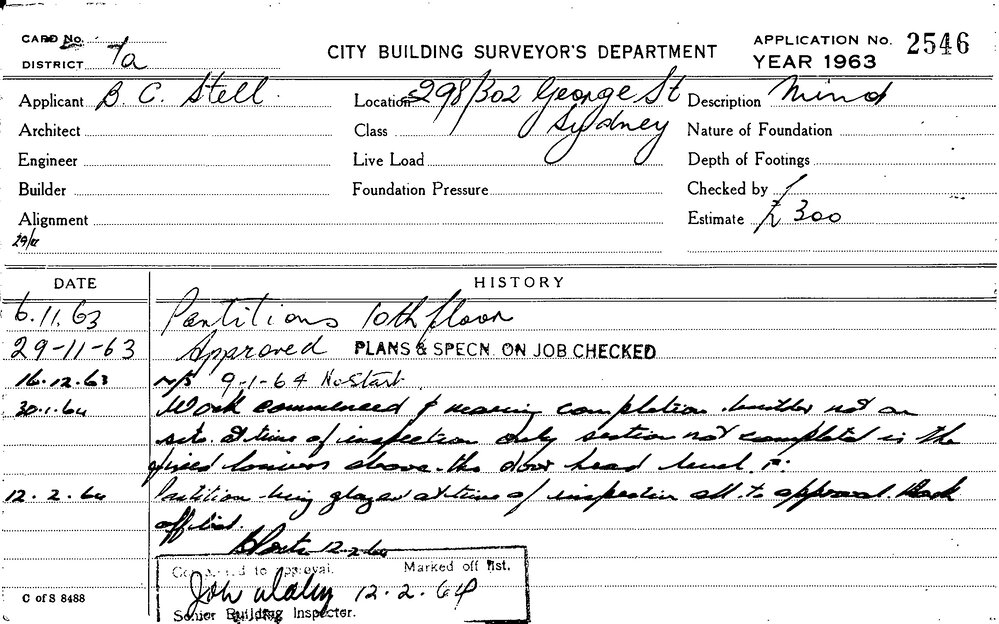 CARD No.
DISTRICT 7a
CITY BUILDING SURVEYOR'S DEPARTMENT
APPLICATION No. 2546
YEAR 1963
Applicant B. C. Stell
Location 298/302 George St
Sydney
Description Mind
Architect
Class
Nature of Foundation
Engineer
Live Load
Depth of Footings
Builder
Foundation Pressure
Checked by
Alignment
Estimate £300
DATE HISTORY
6.11.63 Partitions 10th floor
29-11-63 Approved PLANS & SPECN. ON JOB CHECKED
16.12.63 N/S 9-1-64 No Start
30.1.64 Work commenced & nearing completion. builder not on
site. At time of inspection only section not completed is the
fixed louvers above the door head level.
12.2.64 Partition being glazed at time of inspection all to approval. Mark
off list.
12-2-64
Completed to approval. Marked off list.
12.2.64
Senior Building Inspector.
C of S 8488